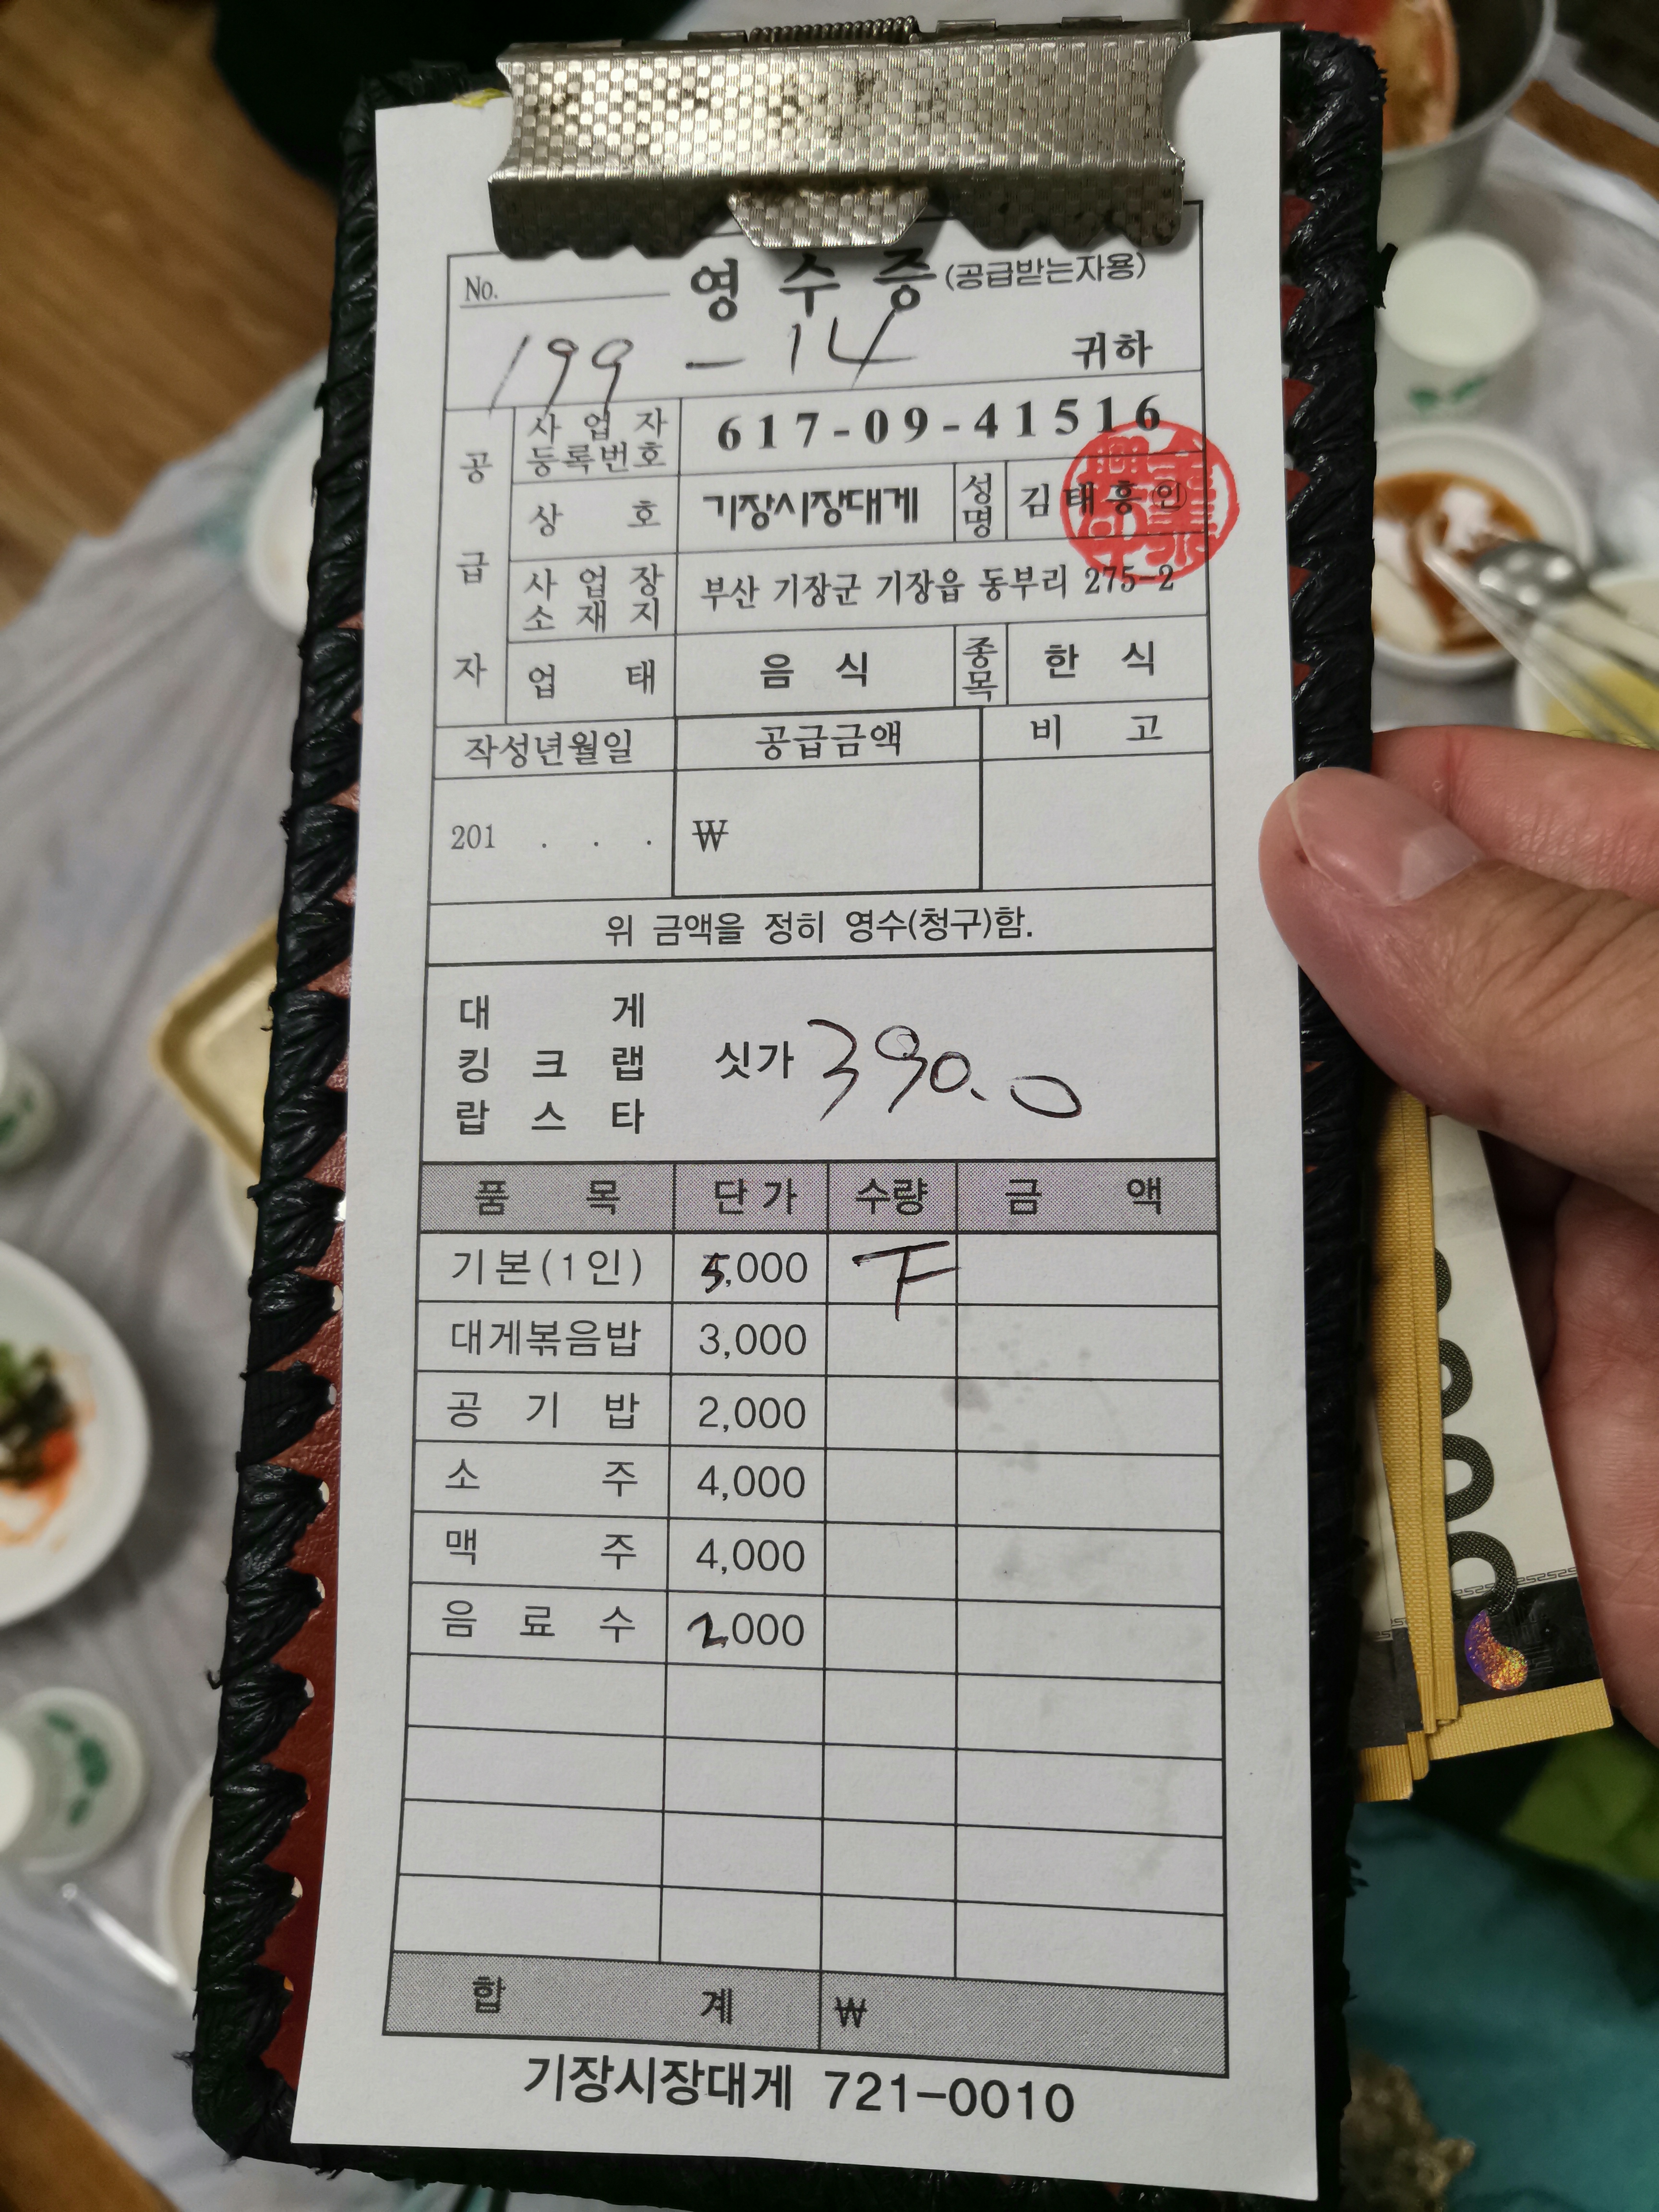 No. 영 수 증 (공급받는자용)
199 - 14 귀하
공급자
사업자등록번호 617-09-41516
상 호 기장시장대게 성명 김태흥 인
사업장소재지 부산 기장군 기장읍 동부리 275-2
업 태 음 식 종목 한 식
작성년월일 공급금액 비 고
201 . . . ₩
위 금액을 정히 영수(청구)함.
대 게
킹 크 랩 싯가 390.0
랍 스 타
품 목 단가 수량 금 액
기본(1인) 5,000 ㅜ
대게볶음밥 3,000
공 기 밥 2,000
소 주 4,000
맥 주 4,000
음 료 수 2,000
합 계 ₩
기장시장대게 721-0010